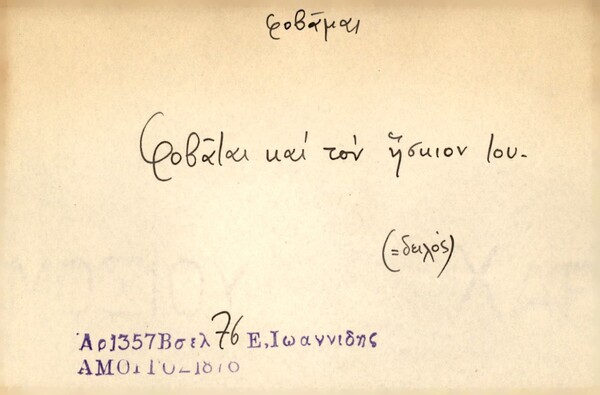 φοβᾶμαι
Φοβᾶται καί τόν ἥσκιον του.
(=δειλός)
Ἀρ1357Βσελ 76 Ε, Ιωαννιδης
ΑΜΟΡΓΟΣ1876